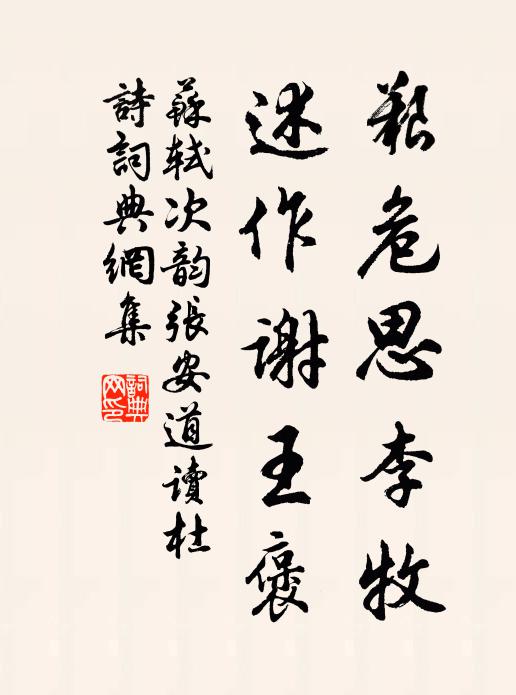 艱危思李牧
述作謝王褒
蘇軾次韵張安道讀杜
詩詞典網集
詞典網印